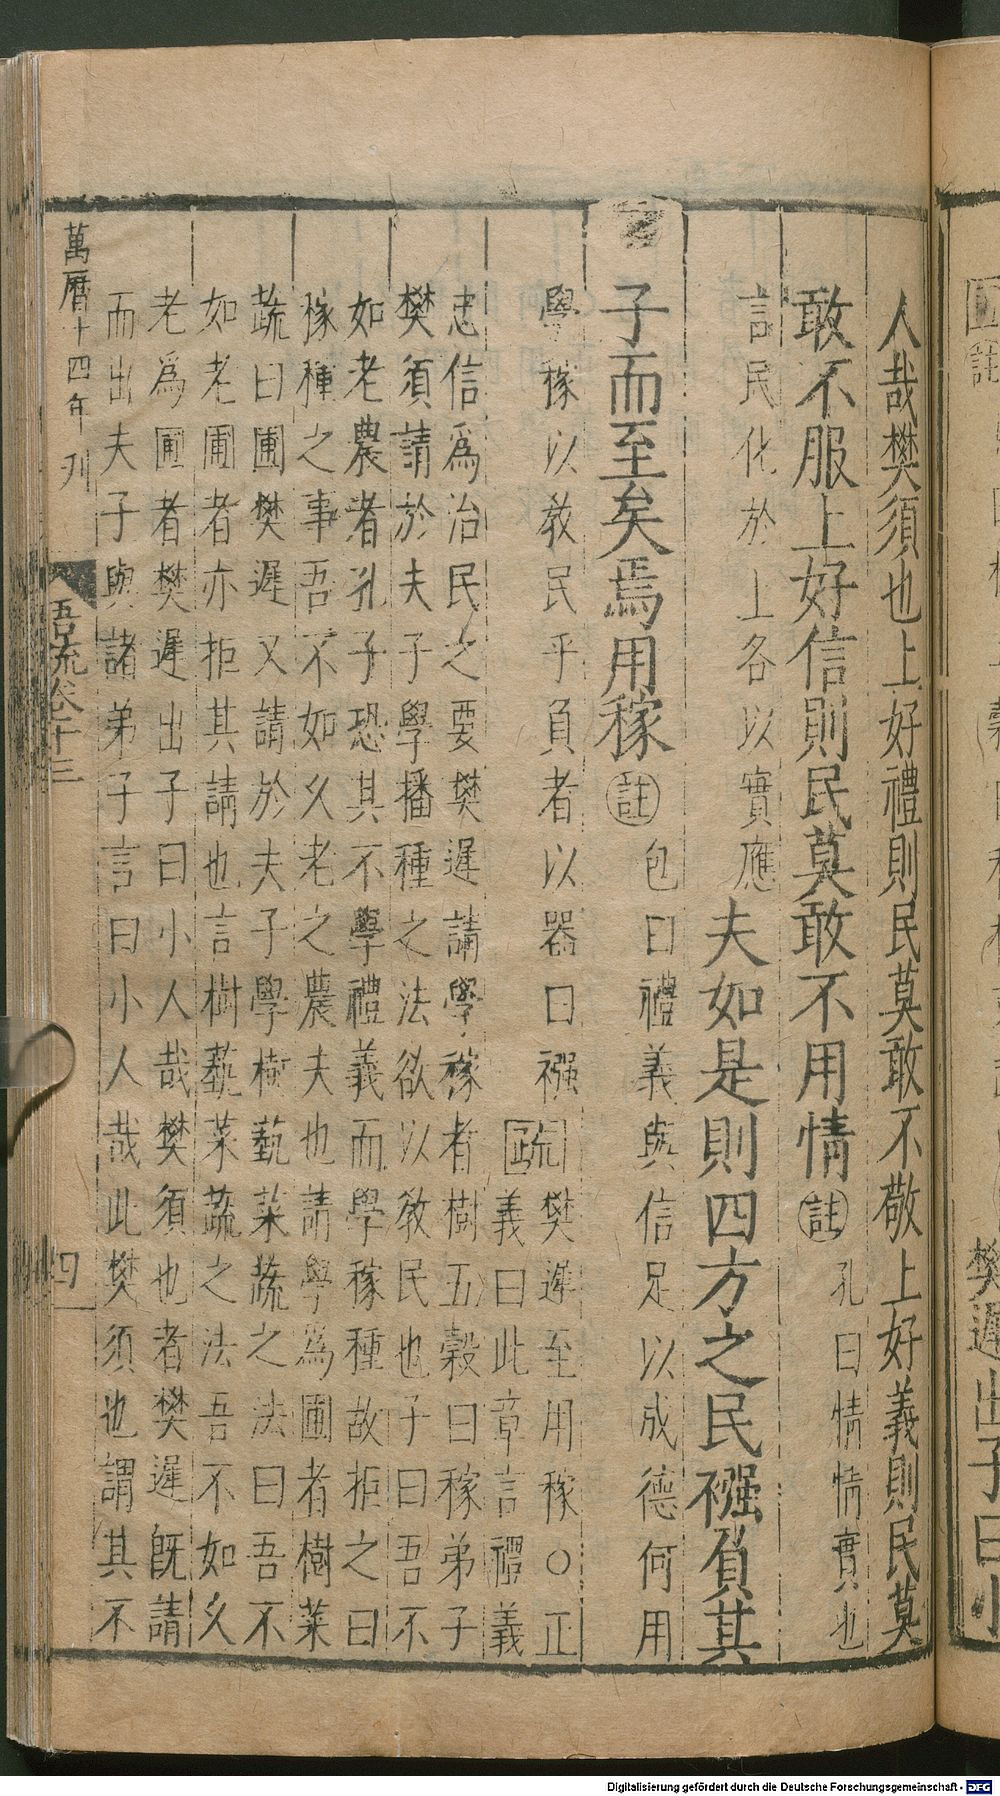 人哉樊須也上好禮則民莫敢不敬上好義則民莫
敢不服上好信則民莫敢不用情
註
孔曰情情實也
言民化於上各以實應
夫如是則四方之民襁負其
子而至矣焉用稼
註
包曰禮義與信足以成德何用
學稼以教民乎負者以器曰襁
疏
樊遲至用稼○正
義曰此章言禮義
忠信為治民之要樊遲請學稼者樹五穀曰稼弟子
樊須請於夫子學播種之法欲以教民也子曰吾不
如老農者孔子恐其不學禮義而學稼種故拒之曰
稼種之事吾不如久老之農夫也請學為圃者樹菜
蔬曰圃樊遲又請於夫子學樹藝菜蔬之法曰吾不
如老圃者亦拒其請也言樹藝菜蔬之法吾不如久
老為圃者樊遲出子曰小人哉樊須也者樊遲既請
而出夫子與諸弟子言曰小人哉此樊須也謂其不
萬曆十四年刊
語疏卷十三
四
樊遲出子曰小
Digitalisierung gefördert durch die Deutsche Forschungsgemeinschaft - DFG